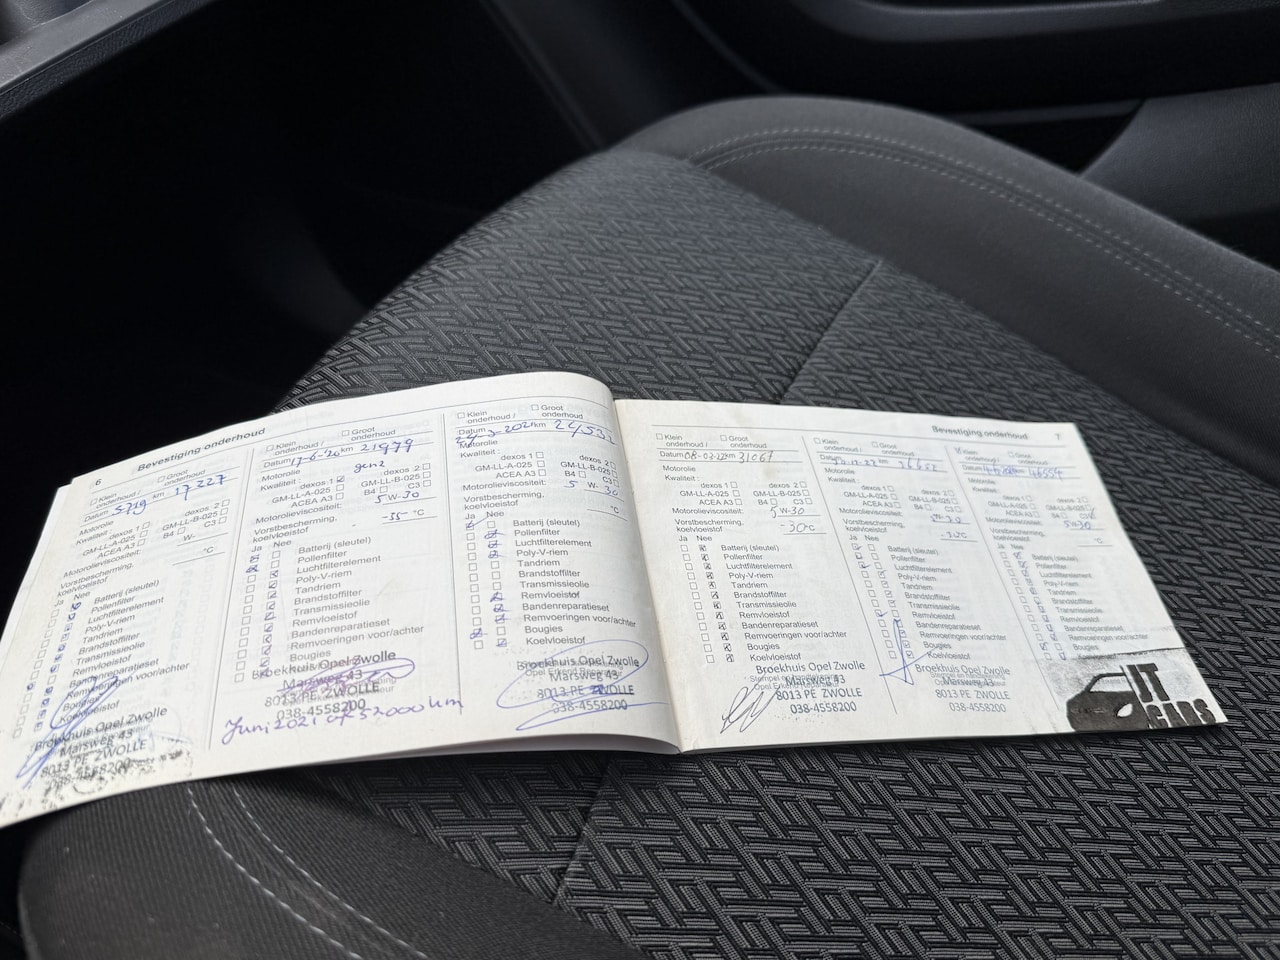 6
Bevestiging onderhoud
Klein onderhoud / Groot onderhoud
Datum 5-7-19 km 17227
Motorolie
Kwaliteit : dexos 1 dexos 2
GM-LL-A-025 GM-LL-B-025
ACEA A3 B4 C3
Motorolieviscositeit: W-
Vorstbescherming,
koelvloeistof °C
Ja Nee
Batterij (sleutel)
Pollenfilter
Luchtfilterelement
Poly-V-riem
Tandriem
Brandstoffilter
Transmissieolie
Remvloeistof
Bandenreparatieset
Remvoeringen voor/achter
Bougies
Koelvloeistof
Broekhuis Opel Zwolle
Marsweg 43
8013 PE ZWOLLE
038-4558200
Klein onderhoud / Groot onderhoud
Datum 17-6-20 km 21979
Motorolie gen2
Kwaliteit : dexos 1 dexos 2
GM-LL-A-025 GM-LL-B-025
ACEA A3 B4 C3
Motorolieviscositeit: 5 W-30
Vorstbescherming,
koelvloeistof -35 °C
Ja Nee
Batterij (sleutel)
Pollenfilter
Luchtfilterelement
Poly-V-riem
Tandriem
Brandstoffilter
Transmissieolie
Remvloeistof
Bandenreparatieset
Remvoeringen voor/achter
Bougies
Broekhuis Opel Zwolle
Marsweg 43
8013 PE ZWOLLE
038-4558200
Juni 2021 of 52000 km
Klein onderhoud / Groot onderhoud
Datum 24-3-2021 km 24532
Motorolie
Kwaliteit : dexos 1 dexos 2
GM-LL-A-025 GM-LL-B-025
ACEA A3 B4 C3
Motorolieviscositeit: 5 W- 30
Vorstbescherming,
koelvloeistof °C
Ja Nee
Batterij (sleutel)
Pollenfilter
Luchtfilterelement
Poly-V-riem
Tandriem
Brandstoffilter
Transmissieolie
Remvloeistof
Bandenreparatieset
Remvoeringen voor/achter
Bougies
Koelvloeistof
Broekhuis Opel Zwolle
Marsweg 43
8013 PE ZWOLLE
038-4558200
Bevestiging onderhoud 7
Klein onderhoud / Groot onderhoud
Datum 08-03-22 km 31067
Motorolie
Kwaliteit : dexos 1 dexos 2
GM-LL-A-025 GM-LL-B-025
ACEA A3 B4 C3
Motorolieviscositeit: 5 W-30
Vorstbescherming,
koelvloeistof -30 °C
Ja Nee
Batterij (sleutel)
Pollenfilter
Luchtfilterelement
Poly-V-riem
Tandriem
Brandstoffilter
Transmissieolie
Remvloeistof
Bandenreparatieset
Remvoeringen voor/achter
Bougies
Koelvloeistof
Broekhuis Opel Zwolle
Marsweg 43
8013 PE ZWOLLE
038-4558200
Klein onderhoud / Groot onderhoud
Datum km
Motorolie
Kwaliteit : dexos 1 dexos 2
GM-LL-A-025 GM-LL-B-025
ACEA A3 B4 C3
Motorolieviscositeit: 5W-30
Vorstbescherming,
koelvloeistof
Ja Nee
Batterij (sleutel)
Pollenfilter
Luchtfilterelement
Poly-V-riem
Tandriem
Brandstoffilter
Transmissieolie
Remvloeistof
Bandenreparatieset
Remvoeringen voor/achter
Bougies
Koelvloeistof
Broekhuis Opel Zwolle
Marsweg 43
8013 PE ZWOLLE
038-4558200
Klein onderhoud / Groot onderhoud
Datum
Motorolie
Kwaliteit : dexos 1 dexos 2
GM-LL-A-025 GM-LL-B-025
ACEA A3 B4 C3
Motorolieviscositeit: 5W-30
Vorstbescherming,
koelvloeistof °C
Ja Nee
Batterij (sleutel)
Pollenfilter
Luchtfilterelement
Poly-V-riem
Tandriem
Brandstoffilter
Transmissieolie
Remvloeistof
Bandenreparatieset
Remvoeringen voor/achter
Bougies
Koelvloeistof
IT
CARS